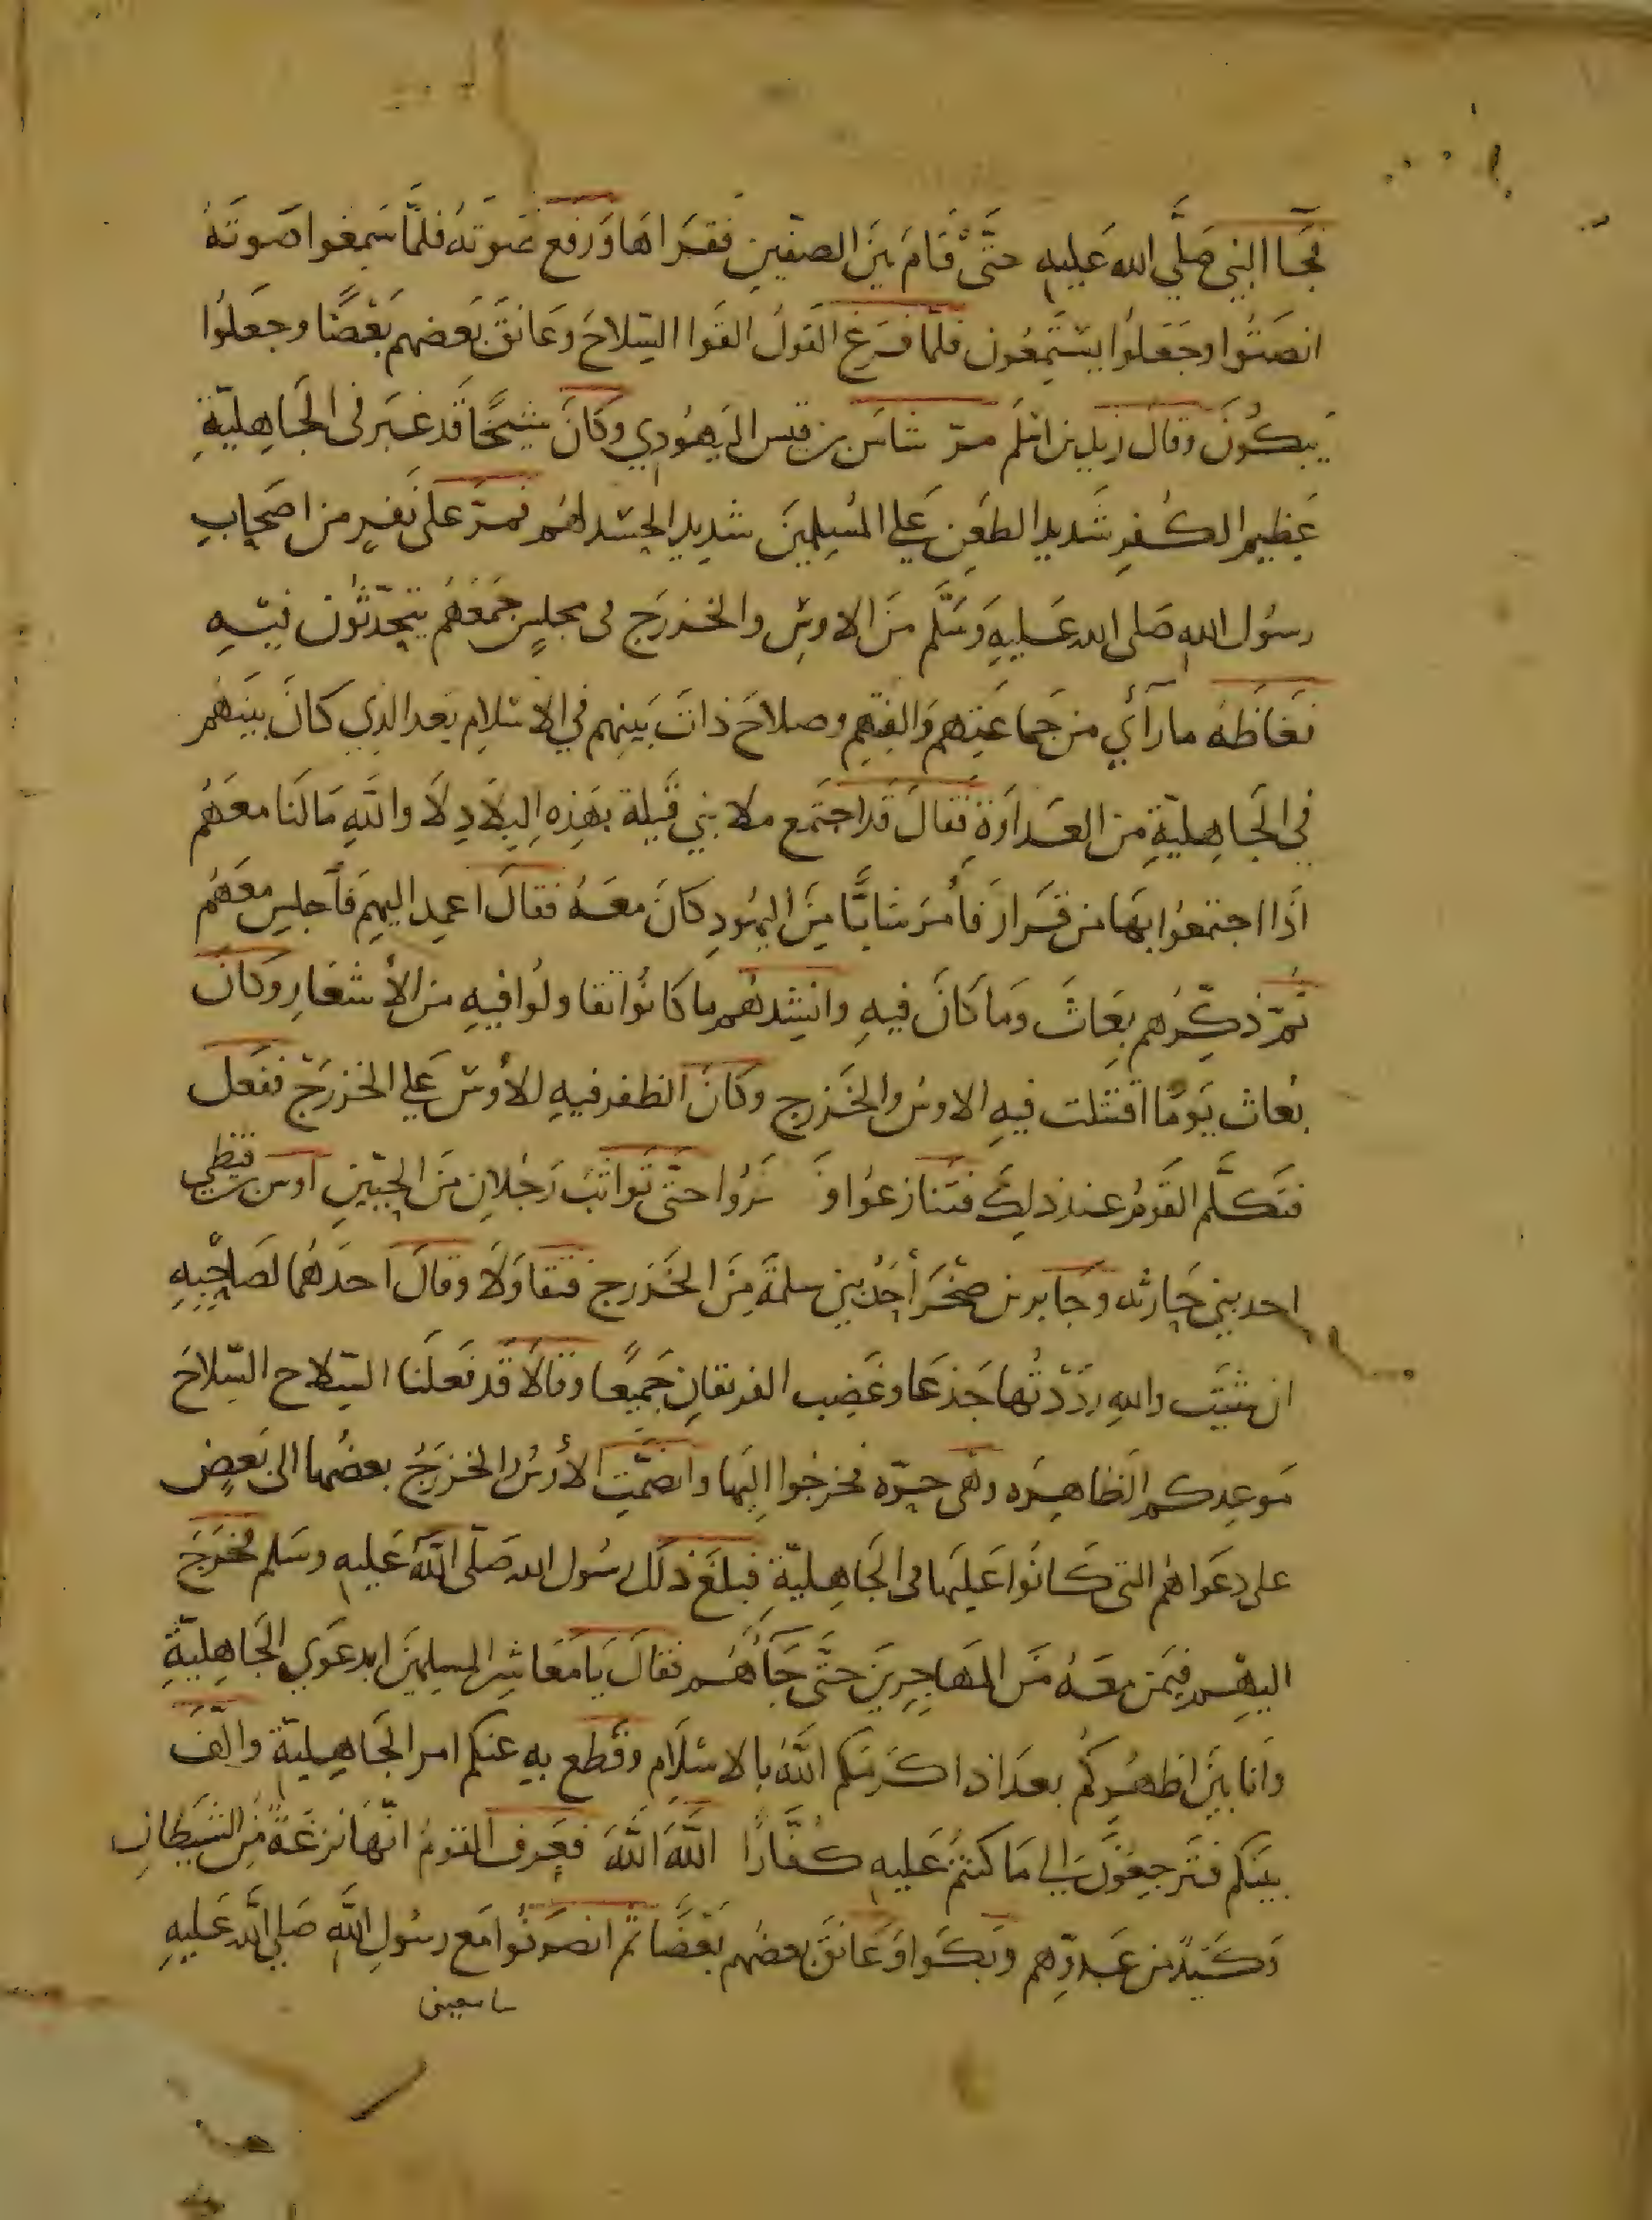 فجاا النبي صَلَّي الله عَليهِ حتَّى قَامَ بَينَ الصفّينِ فَقَرَاهَا وَرَفع صَوتَهُ فلمَّا سَمِعُوا صَوتَهُ
انصَتُوا وجَعَلُوا يَستَمِعُون فلمّا فَرَغ القَولُ القَوا السِّلاحَ وعَانَقَ بَعضهم بَعْضًا وجعَلُوا
يَبكُونَ وقالَ زيد بن اسْلم مرّ شاس بن قيس اليَهُودِي وكانَ شيخًا قَد غَبَر فى الجَاهِليّةِ
عَظِيم الكُفرِ شَديد الطعْنِ عَلي المُسِلمينَ شدِيد الحسَد لهُم فمرَّ عَلَى نَفرٍ من اصحَابِ
رسُول اللهِ صَلى الله عَليهِ وَسَلَّم مِنَ الاوسِ والخزرَج فى مجلسٍ جَمَعَهُمْ يتحَدّثُون فيهِ
فغَاظَهُ ما رَآَي من جَماعَتِهم وَالفِتهم وصلاحَ ذاتَ بَينِهم في الاسْلامِ بَعد الذِي كَانَ بينَهُم
في الجَاهِليّةِ من العَدَاوَةِ فقالَ قَد اجتَمع ملا بَني قَيلة بهَذِهِ البِلادِ لاَ واللهِ مَا لَنا معَهُم
اذَا اجتمعُوا بهَا من قَرَارَ فأَمُرَ شابًّا مِنَ اليهُودِ كانَ معَهُ فقالَ اعمِد اليهِم فَأجلِس معَهُم
ثُمّ ذكِّرهُم بِعَاثَ وَمَا كَانَ فيهِ وانشِدهُم ما كانُوا تقاولُوا فيهِ من الأشعَارِ وكانَ
بُعاث يَومًا اقتتلت فيهِ الاوسُ والخَزرج وكَانَ الظفر فيهِ للأوسِ عَلي الخزرَج ففعَل
فتكَلَّم القَومُ عند ذلِكَ فتنازعُوا وَ حتّى تَواثَبَ رَجُلانِ مِنَ الحيّينِ اوس بن قيظي
احد بني حَارثه وجَابر بن صَخْرَ أحَدُ بني سلمَةَ مِنَ الخَزرج فتقاوَلاَ وقالَ احَدهُمَا لصَاحِبِهِ
ان شئت واللهِ رَدّدتُها جَذعَا وغَضِب الفريقانِ جَميعًا وقالاَ قَد فَعَلنَا السِّلاح السِّلاحَ
مَوعِدكم الظاهِرَه وَهى حرّه فخرجُوا اليهَا وانضَمَّتِ الأوسُ والخزرَجُ بعضُها الى بَعضٍ
على دعَواهُم التى كَانُوا عَليهَا فى الجَاهِليّةِ فبلغَ ذلك رسُول الله صَلّى اللهُ عَليهِ وسَلم فخرَجَ
اليهِم فيمَن معَهُ مَن المهَاجِرِينَ حتَّى جَآَهُم فقالَ يَا مَعَاشِر المسلِمينَ ابدعَوَي الجَاهِليّةِ
وَانا بينَ اظهُرِكُم بعدَ اذ اكرمَكم اللهُ بالاسْلاَمِ وقطع بهِ عنكم امر الجَاهِليّةِ والَّفَ
بينَكم فتَرجِعُونَ الي مَا كنتُم عَليهِ كُفّارًا اللهَ اللهَ فعَرف القومُ انّهَا نَزغَةٌ مِن الشَيطَانِ
وَكيدٌ من عَدوّهم وبَكَوا وَعَانقَ بعضهُم بَعْضًا ثم انصَرفُوا مَع رسُولِ اللهِ صَلي الله عَليهِ
سامعين